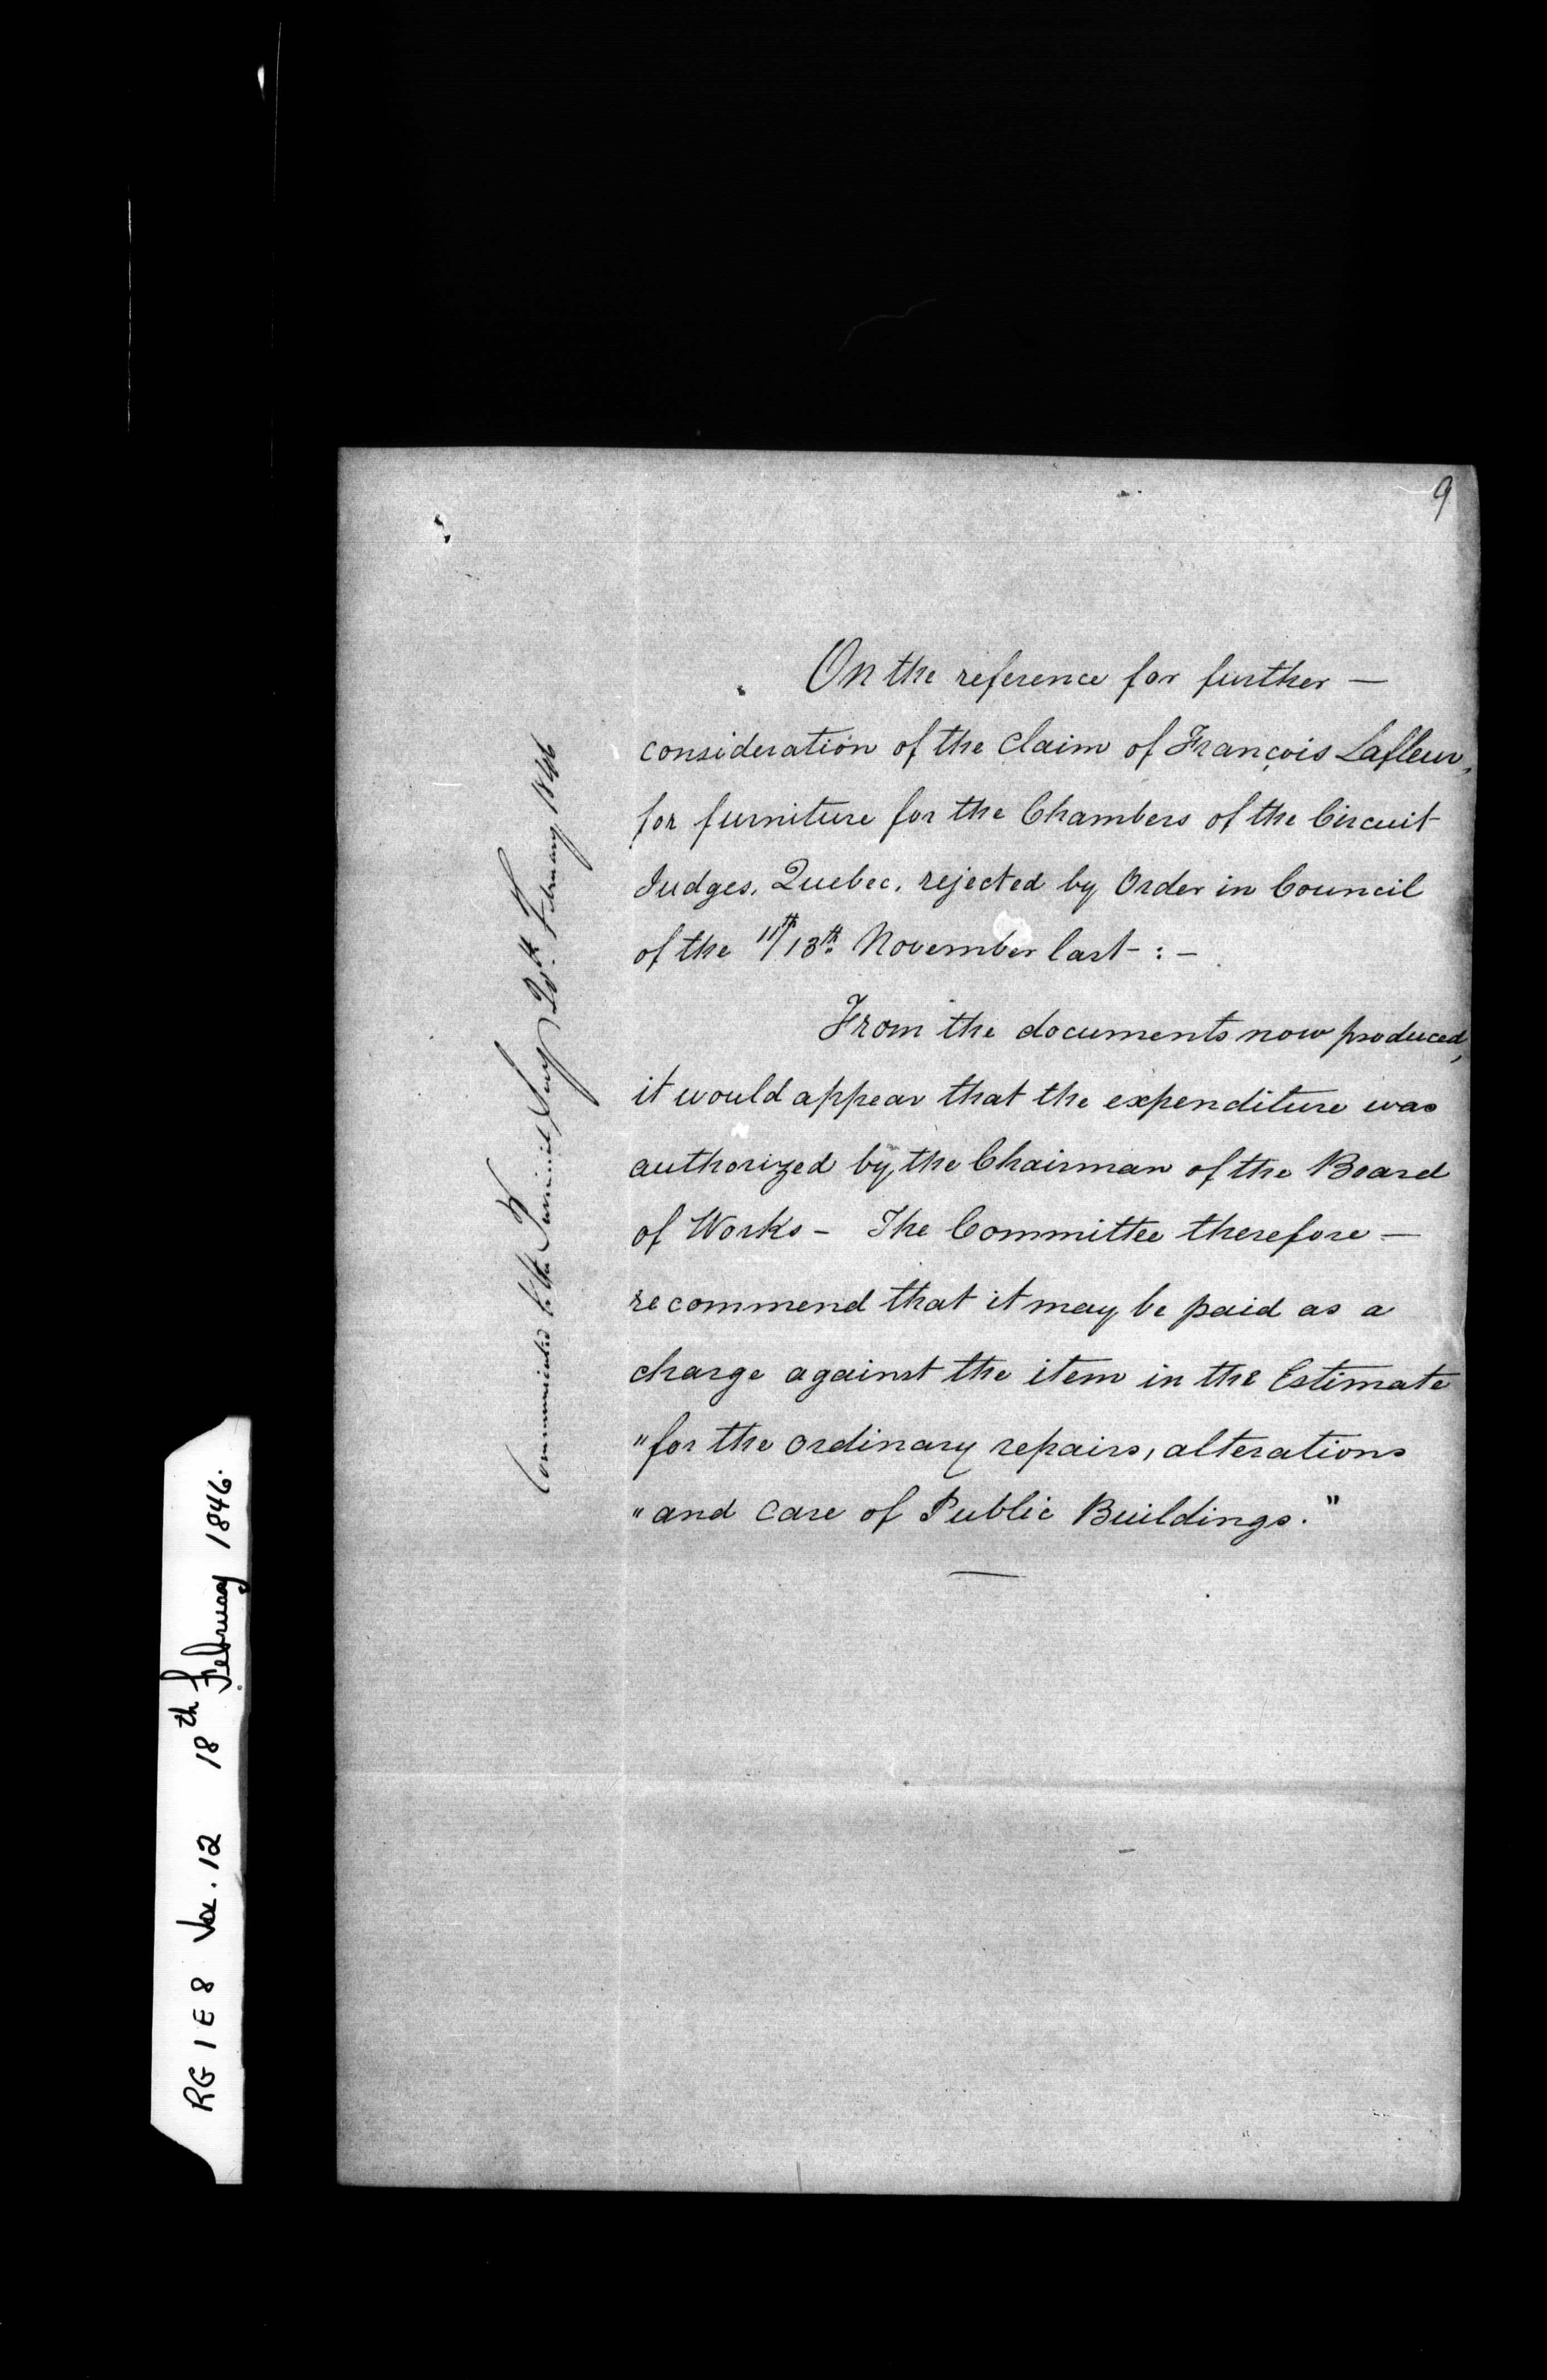 9
On the reference for further —
consideration of the Claim of François Lafleur,
for furniture for the Chambers of the Circuit
Judges, Quebec, rejected by Order in Council
of the 11th/13th November last : —
From the documents now produced,
it would appear that the expenditure was
authorized by the Chairman of the Board
of Works — The Committee therefore —
recommend that it may be paid as a
charge against the item in the Estimate
"for the ordinary repairs, alterations
"and care of Public Buildings."
Communicated to the February 1846
RG 1 E 8 Vol. 12 18th February 1846.